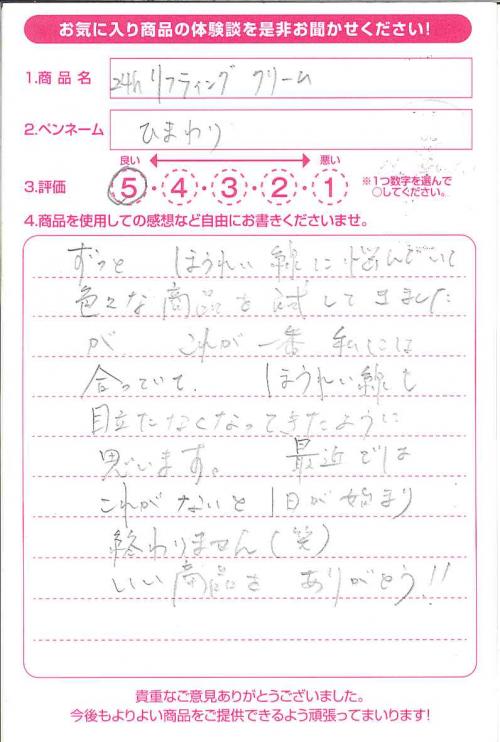 お気に入り商品の体験談を是非お聞かせください!
1.商品名
24hリフティング クリーム
2.ペンネーム
ひまわり
良い 悪い
3.評価
5・4・3・2・1
※1つ数字を選んで
○してください。
4.商品を使用しての感想など自由にお書きくださいませ。
ずっと ほうれい線に悩んでいて
色々な商品を試してきました
が これが一番 私には
合っていて、 ほうれい線も
目立たなくなってきたように
思います。 最近では
これがないと1日が始まり
終わりません(笑)
いい商品を ありがとう!!
貴重なご意見ありがとうございました。
今後もよりよい商品をご提供できるよう頑張ってまいります!